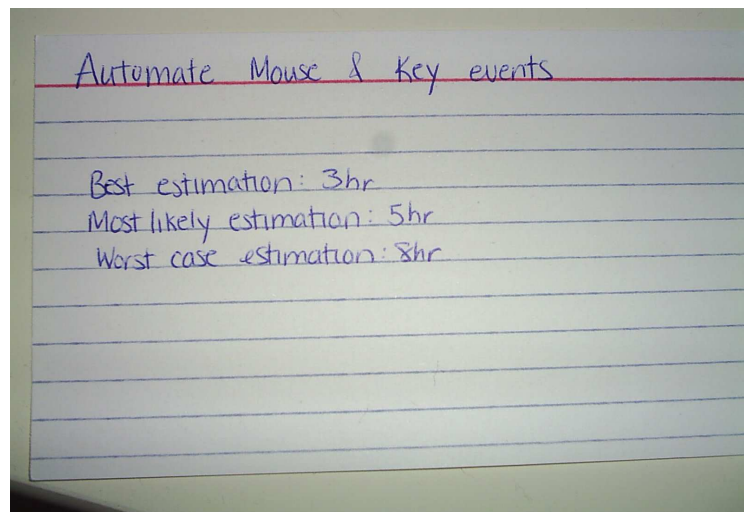 Automate Mouse & Key events
Best estimation: 3hr
Most likely estimation: 5hr
Worst case estimation: 8hr